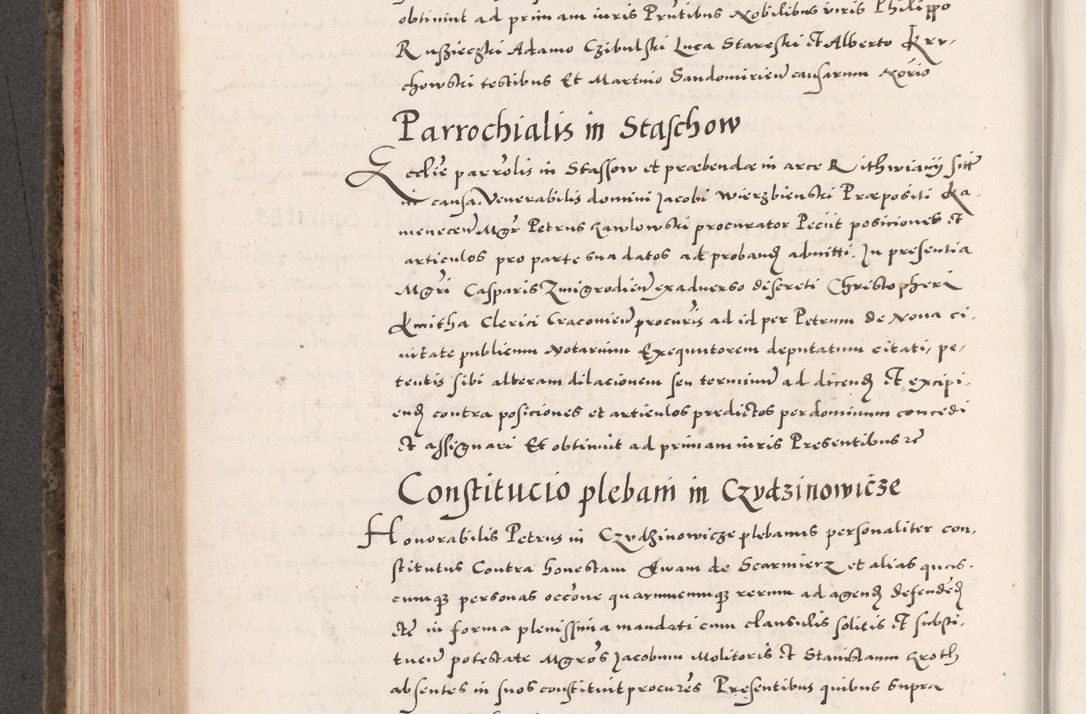 obtinuit ad primam iuris Prntibus Nobilibus viris Philippo
Ruszieczki Adamo Czibulski Luca Stareski et Alberto Kry-
chowski testibus Et Martino Sandomirien causarum Norio
Parrochialis in Staschow
Ecclie parrolis in Stassow et præbendæ in arce Rithwiany sitt
in causa Venerabilis domini Jacobi Wierzbienski Præpositi Ka-
menecen Mgr Petrus Kawlowski procurator Peciit posiciones et
articulos pro parte sua datos ad proband admitti. In presentia
Mgri Casparis Zmigrodien ex adverso discreti Christopheri
Kmitha Clerici Cracovien procuris ad id per Petrum de Nova ci-
vitate publicum Notarium Exequutorem deputatum citati, pe-
tentis sibi alteram dilacionem seu terminum ad dicend et excipi-
end contra posiciones et articulos predictos per dominum concedi
et assignari Et obtinuit ad primam iuris Presentibus rc
Constitucio plebani in Czydzinowicze
Honorabilis Petrus in Czydzinowicze plebanus personaliter con-
stitutus Contra honestam Ewam de Scarmierz et alias quas-
cumq personas occone quarumcumq rerum ad agend defendend
etc in forma plenissima mandati cum clausulis solitis et substi-
tuen potestate Mgros Jacobum Molitoris et Stanislaum Kroth
absentes in suos constituit procures Presentibus quibus supra